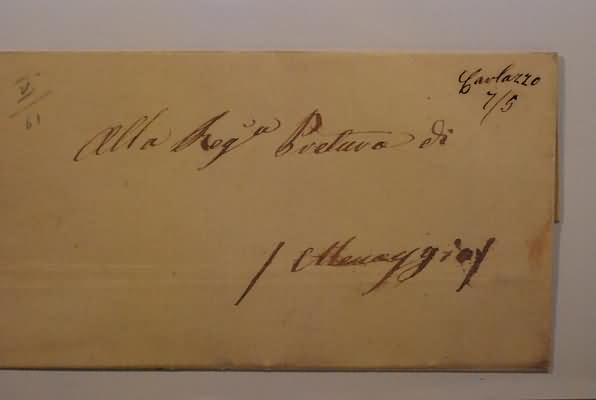 Carlazzo
7/5
V
61
Alla Reg.ª Pretura di
/ Menaggio /